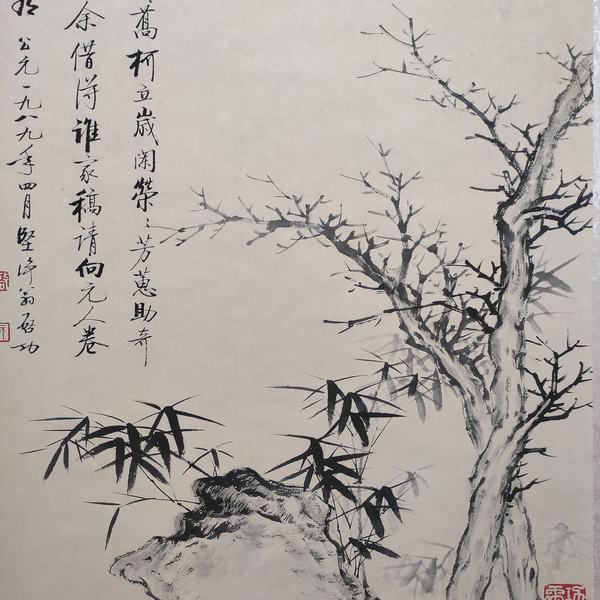 喬柯立歲闌榮〻芳蕙助奇
余借得誰家稿請向元人卷
公元一九八九年四月堅淨翁启功